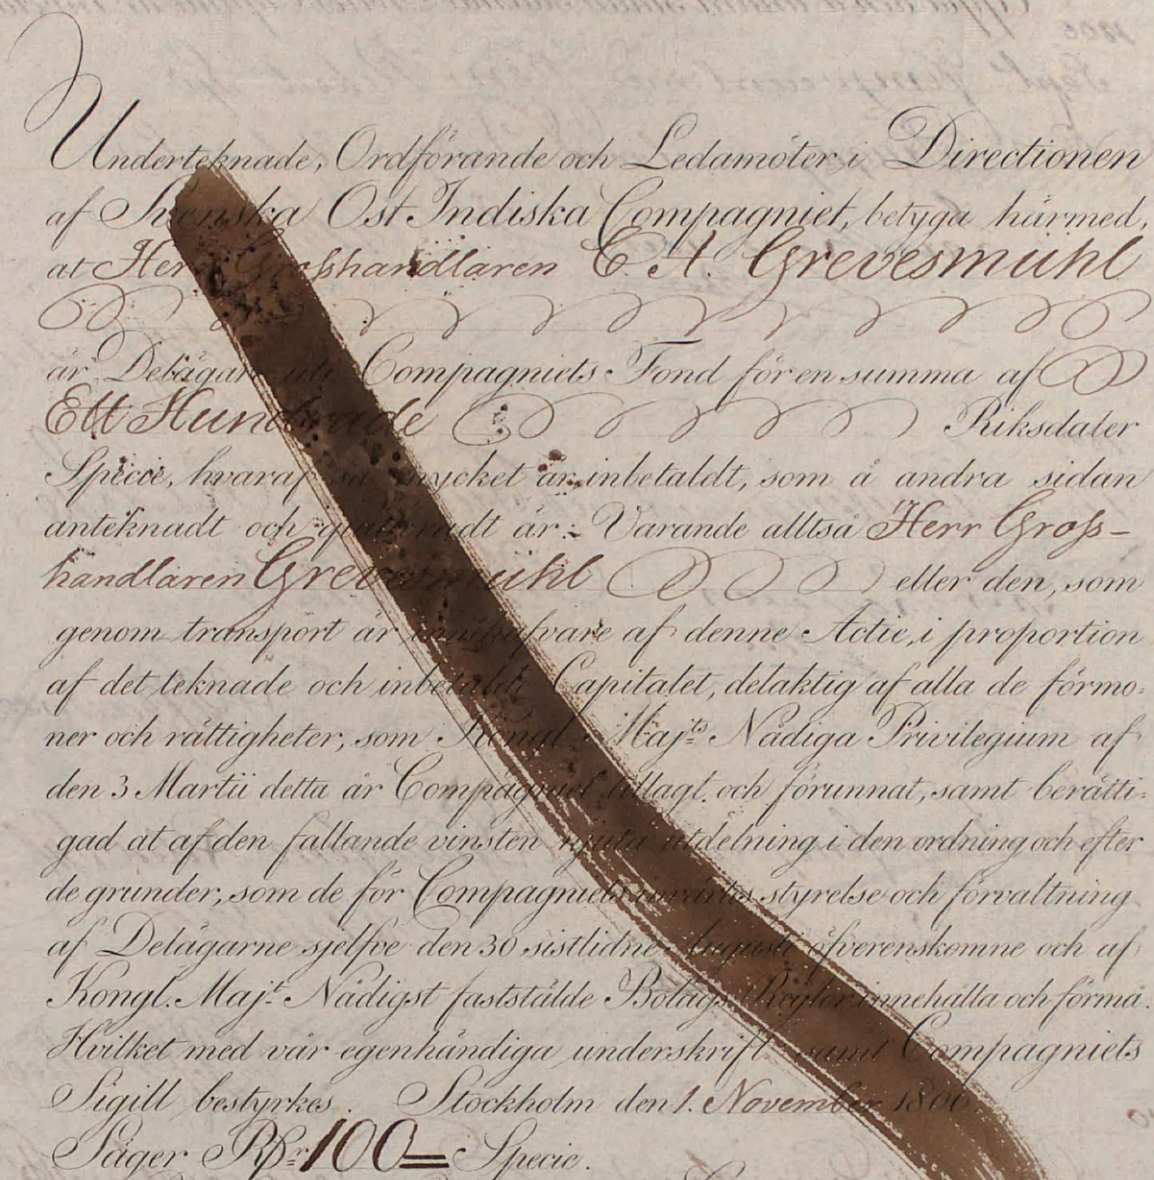 Underteknade, Ordförande och Ledamöter i Directionen
af Svenska Ost Indiska Compagniet, betyga härmed,
at Herr Grosshandlaren C. A. Grevesmühl
är Delägare uti Compagniets Fond för en summa af
Ett Hundrade Riksdaler
Specie, hvaraf så mycket är inbetaldt, som å andra sidan
anteknadt och qvitteradt är: Varande alltså Herr Gross-
handlaren Grevesmühl eller den, som
genom transport är innehafvare af denne Actie, i proportion
af det teknade och inbetalde Capitalet, delaktig af alla de förmo-
ner och rättigheter, som Kongl. Maj:ts Nådiga Privilegium af
den 3 Martii detta år Compagniet tillagt och förunnat, samt berätti-
gad at af den fallande vinsten njuta utdelning i den ordning och efter
de grunder, som de för Compagniets invärtes styrelse och förvaltning
af Delägarne sjelfve den 30 sistlidne Augusti öfverenskomne och af
Kongl. Maj:t Nådigst faststälde Bolags Reglor innehålla och förmå.
Hvilket med vår egenhändiga underskrift samt Compagniets
Sigill bestyrkes. Stockholm den 1. November 1806.
Säger Rd:r 100 = Specie.